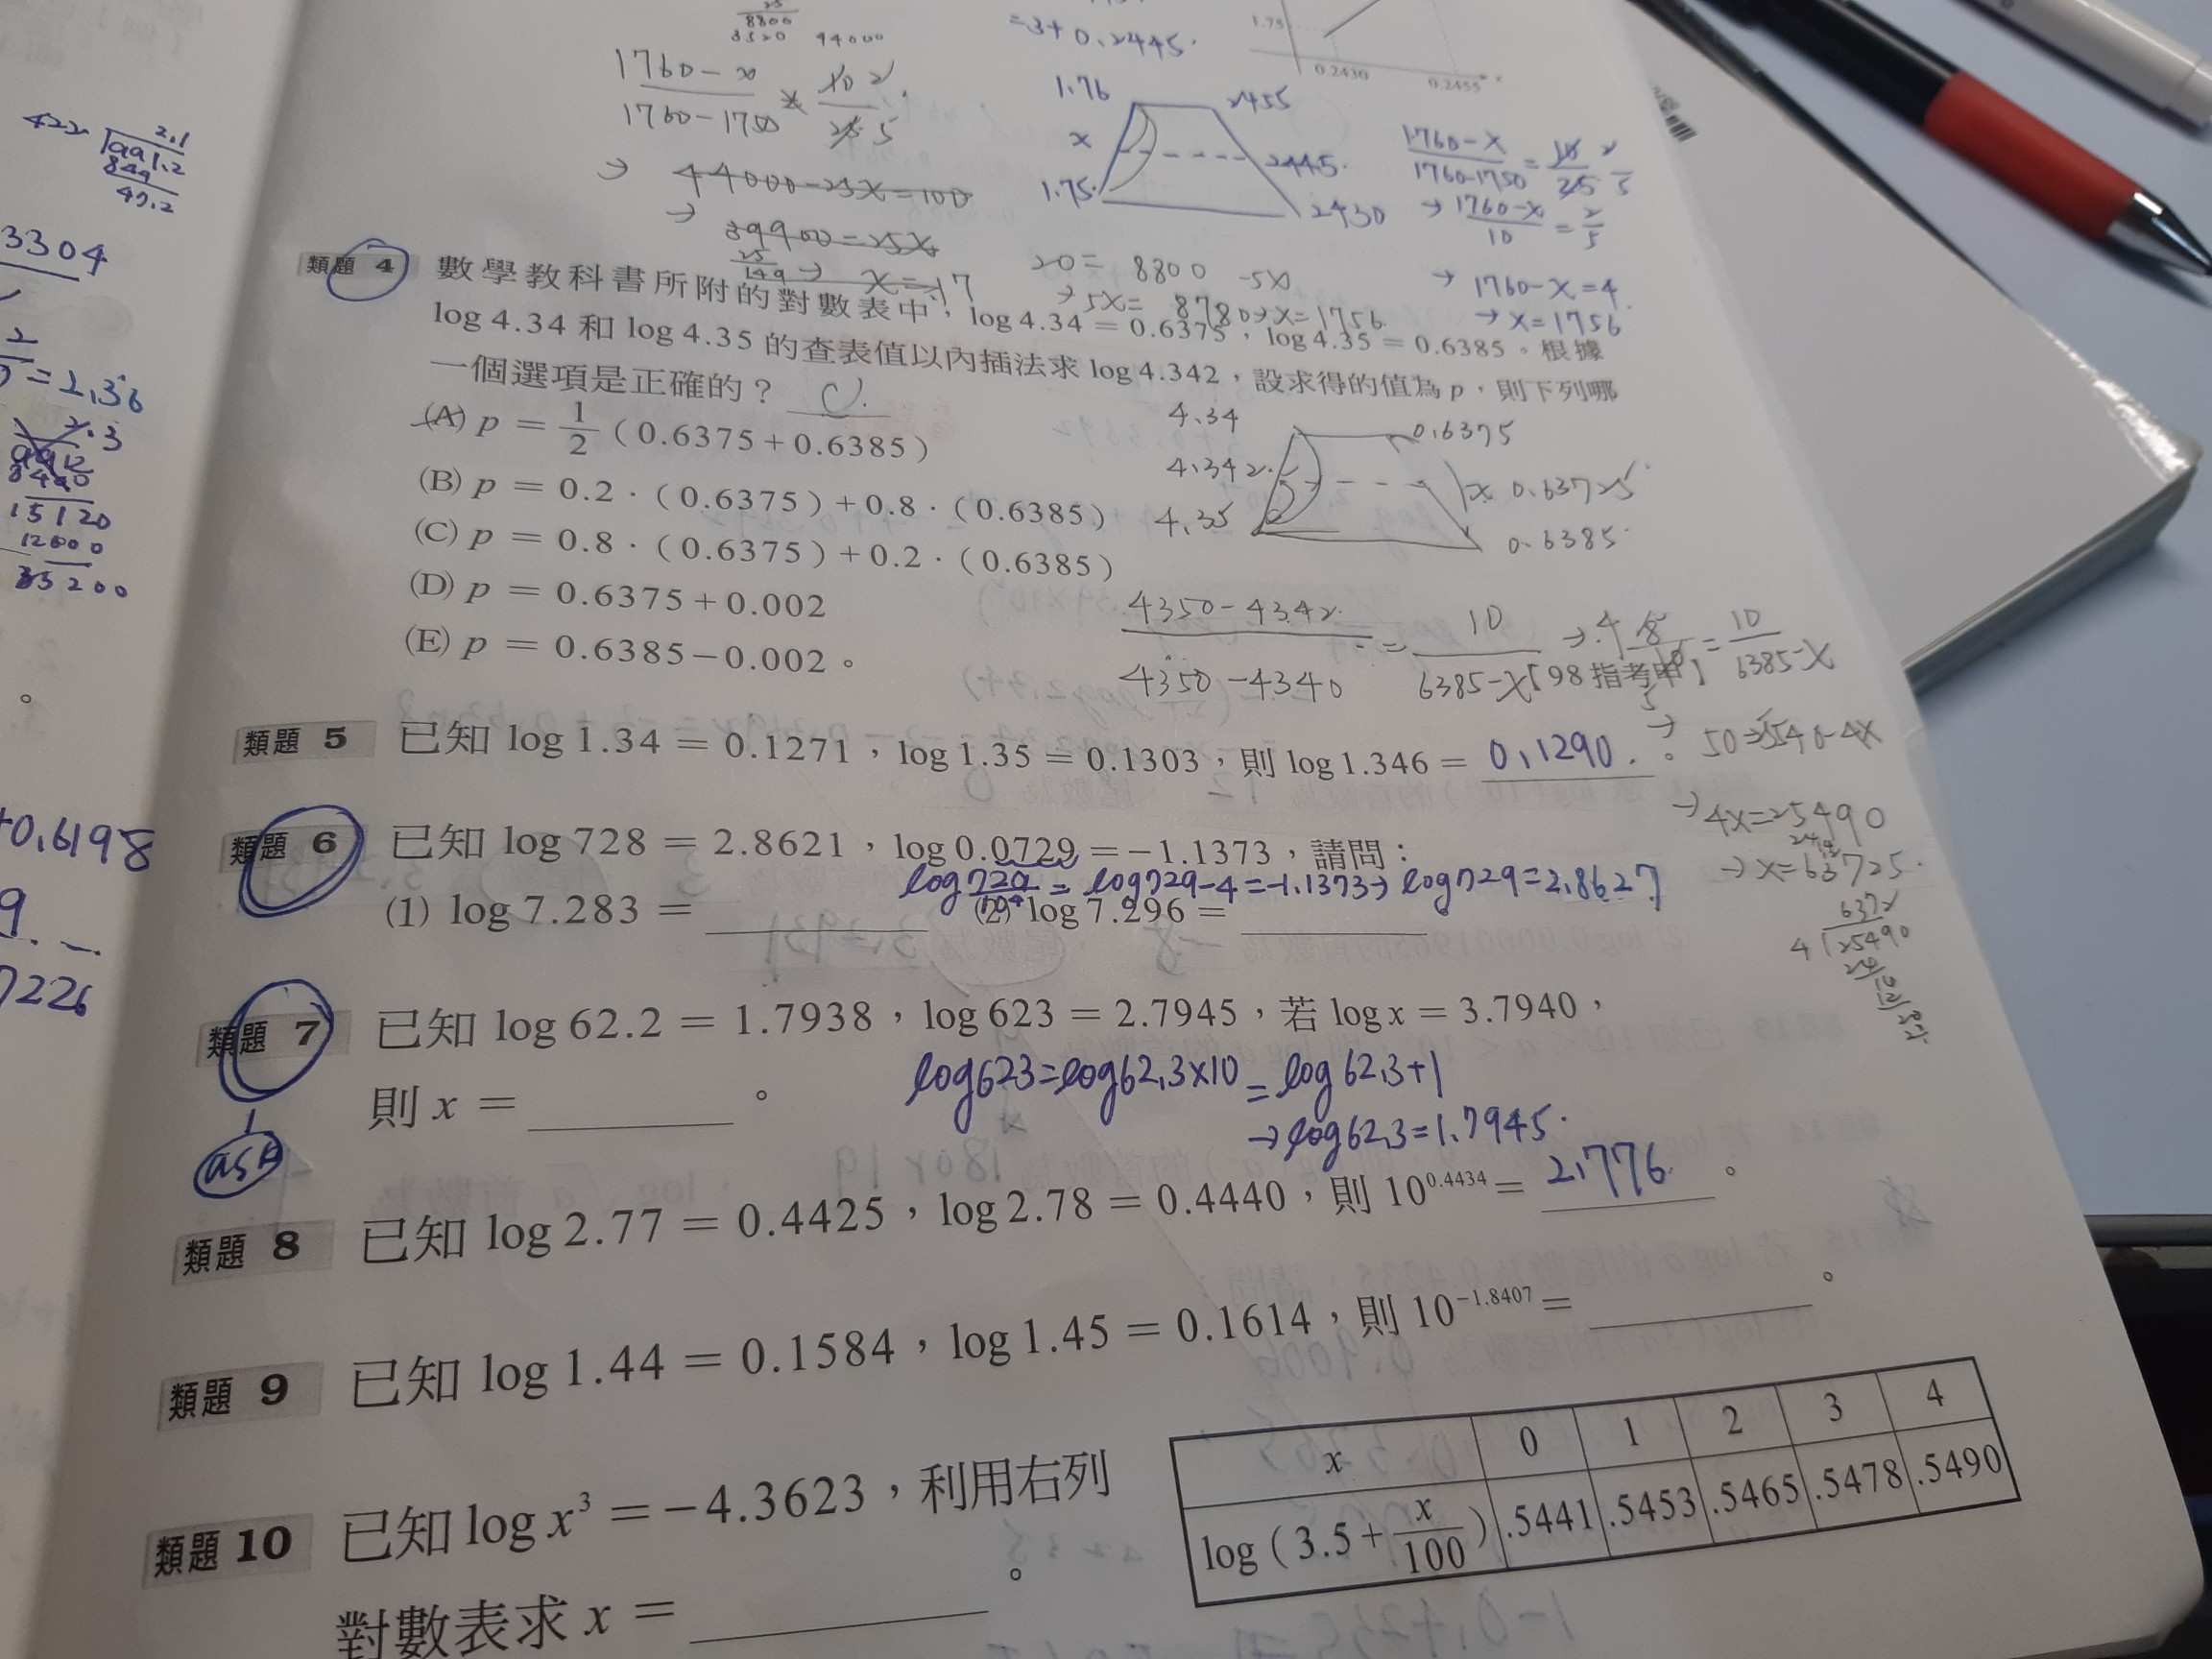 25
8800
3520 44000
1760-x
1760-1750
10 2
25 5
→ 44000-25x=100
→ 39900=25x
→ x=17
=3+0.2445.
1.75
0.2430
0.2455
x
1.76
2455
x
2445.
1.75.
2430
1760-x
1760-1750
= 10 2
25 5
→ 1760-x
10
= 2
5
→ 1760-x=4.
→ x=1756
20= 8800 -5x
→ 5x= 8780→x=1756.
2.1
422
991.2
844
3304
=2.36
2.3
15120
12000
35200
+0.6198
9.
7226
類題 4 數學教科書所附的對數表中,log 4.34 = 0.6375,log 4.35 = 0.6385。根據
log 4.34 和 log 4.35 的查表值以內插法求 log 4.342,設求得的值為 p,則下列哪
一個選項是正確的? C.
(A) p = 1/2 (0.6375+0.6385)
(B) p = 0.2・(0.6375)+0.8・(0.6385)
(C) p = 0.8・(0.6375)+0.2・(0.6385)
(D) p = 0.6375+0.002
(E) p = 0.6385−0.002。
【98 指考甲】
4.34
0.6375
4.342.
x 0.63725
4.35
0.6385.
4350-4342
4350-4340
= 10
6385-x
→ 8
10
= 10
6385-x
→ 50=25540-4x
→ 4x=25490
→ x=63725.
6372
4
25490
類題 5 已知 log 1.34 = 0.1271,log 1.35 = 0.1303,則 log 1.346 = 0.1290. 。
類題 6 已知 log 728 = 2.8621,log 0.0729 = −1.1373,請問:
log 729/10⁴ = log729-4=-1.1373→ log729=2.8627
(1) log 7.283 = (2) log 7.296 =
類題 7 已知 log 62.2 = 1.7938,log 623 = 2.7945,若 log x = 3.7940,
則 x = 。
log623=log62.3×10 = log62.3+1
→log62.3=1.7945.
ask
類題 8 已知 log 2.77 = 0.4425,log 2.78 = 0.4440,則 10^0.4434 = 2.776. 。
類題 9 已知 log 1.44 = 0.1584,log 1.45 = 0.1614,則 10^−1.8407 = 。
類題 10 已知 log x³ = −4.3623,利用右列
對數表求 x = 。
x 0 1 2 3 4
log (3.5+x/100) .5441 .5453 .5465 .5478 .5490